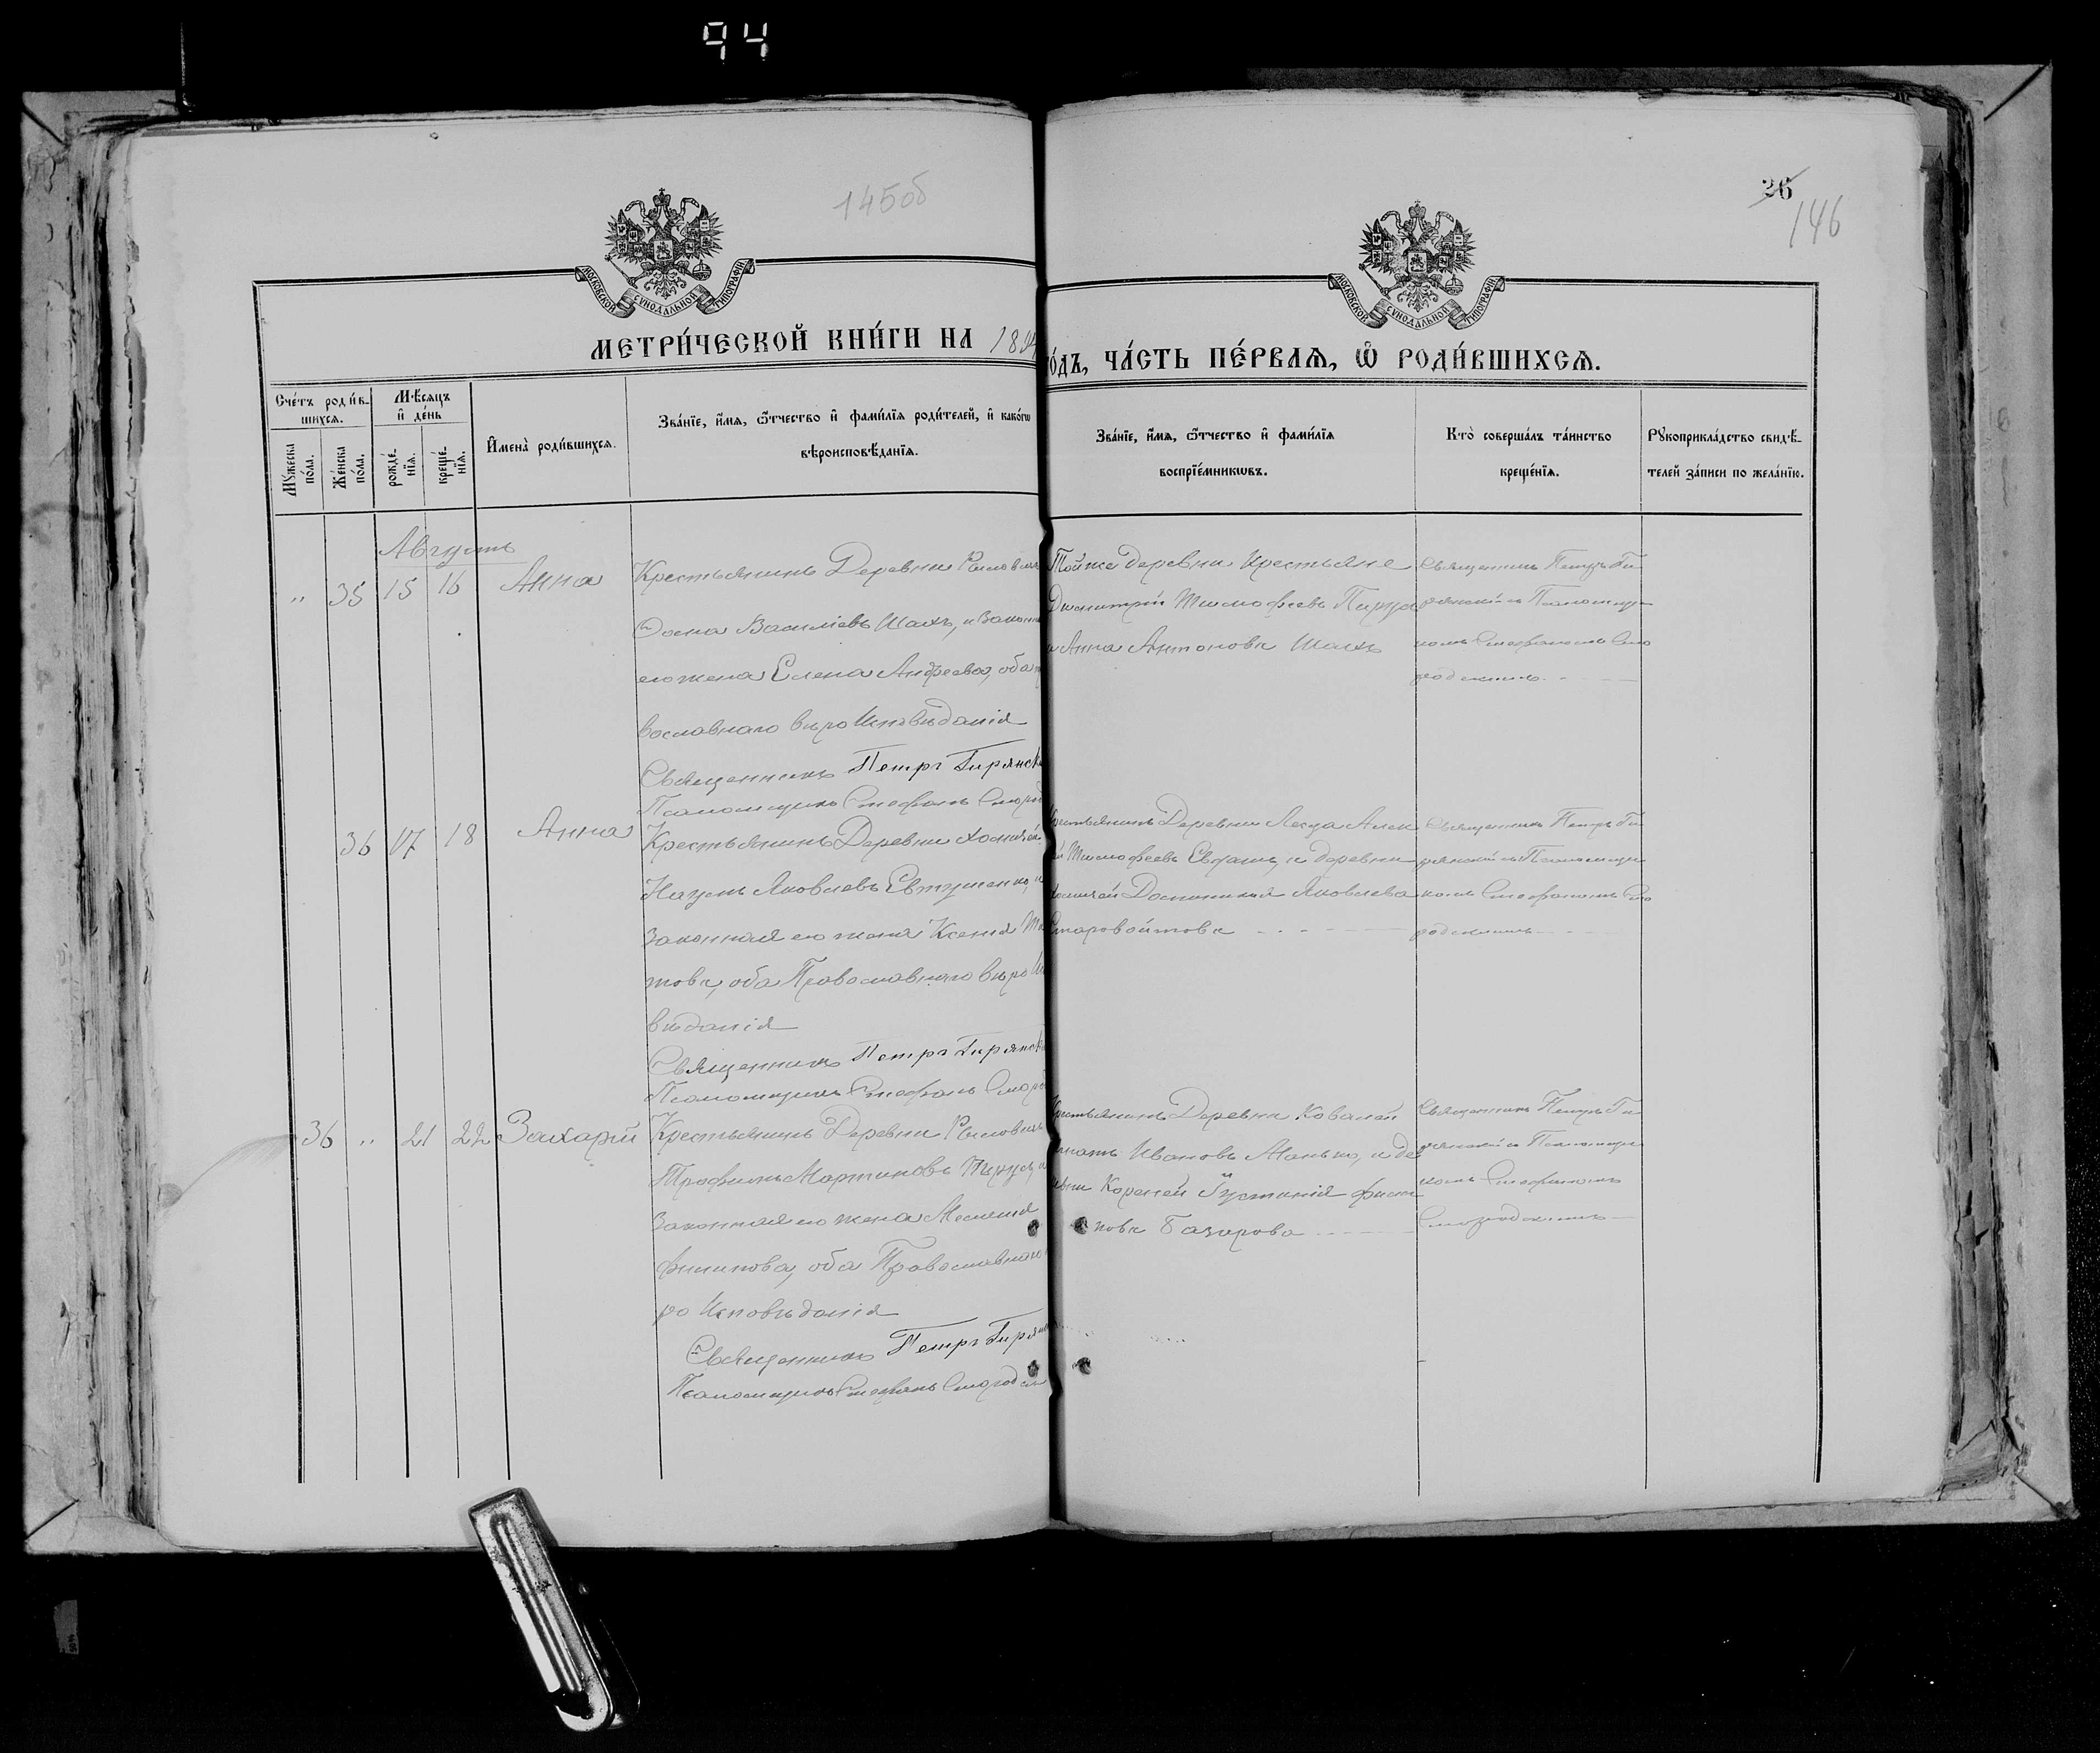 94
145об
26
146
МОСКОВСКОЙ СѴНОДАЛЬНОЙ ТИПОГРАФІИ
МОСКОВСКОЙ СѴНОДАЛЬНОЙ ТИПОГРАФІИ
МЕТРИ́ЧЕСКОЙ КНИ́ГИ НА 1894
О́ДЪ, ЧА́СТЬ ПЕ́РВАЯ, Ѽ РОДИ́ВШИХСЯ.
Сче́тъ роди́в-
шихся.
Мѣ́сяцъ
и҆ де́нь
Мꙋ́жеска по́ла.
Же́нска по́ла.
рожде́-
нїя.
креще́-
нїя.
И҆мена̀ роди́вшихся.
Зва́нїе, и҆́мя, ѻ҆́тчество и҆ фами́лїя роди́телей, и҆ како́гѡ
вѣроисповѣ́данїя.
Зва́нїе, и҆́мя, ѻ҆́тчество и҆ фами́лїя
воспрїе́мникѡвъ.
Кто̀ соверша́лъ та́инство
креще́нїя.
Рꙋкоприкла́дство свидѣ́-
телей за́писи по жела́нїю.
Августъ
„ 35 15 16 Анна
Крестьянинъ Деревни
Ѳома Василіевъ Шахъ, и Законн
его жена Елена Андреева, оба
вославнаго вѣроИсповѣданія
Священникъ Петръ Гирянск
Псаломщикъ Стефанъ Смород
Тойже деревни Крестьяне
Димитрій Тимофеевъ
и Анна Антонова Шахъ
Священникъ Петръ Ги
рянскій съ Псаломщи
комъ Стефаномъ Смо
родскимъ
36 17 18 Анна
Крестьянинъ Деревни Хомичей
Наумъ Яковлевъ Евтушенко, и
законная его жена Ксенія
това, оба Православнаго вѣроИс
вѣданія
Священникъ Петръ Гирянск
Псаломщикъ Стефанъ Смород
рестьянинъ Деревни Алек
ей Тимофеевъ и деревни
Хомичей Домникія Яковлева
Старовойтова
Священникъ Петръ Ги
рянскій съ Псаломщи
комъ Стефаномъ Смо
родскимъ
36 „ 21 22 Захарій
Крестьянинъ Деревни
Трофимъ Мартиновъ
Законная его жена
Филипова, оба Православнаго
роИсповѣданія
Священникъ Петръ Гирян
Псаломщикъ Стефанъ Смородск
рестьянинъ Деревни Ковалей
Ивановъ Манько, и де
вни Кореней Іустинія Фили
пова Базарова
Священникъ Петръ Ги
рянскій съ Псаломщи
комъ Стефаномъ
Смородскимъ